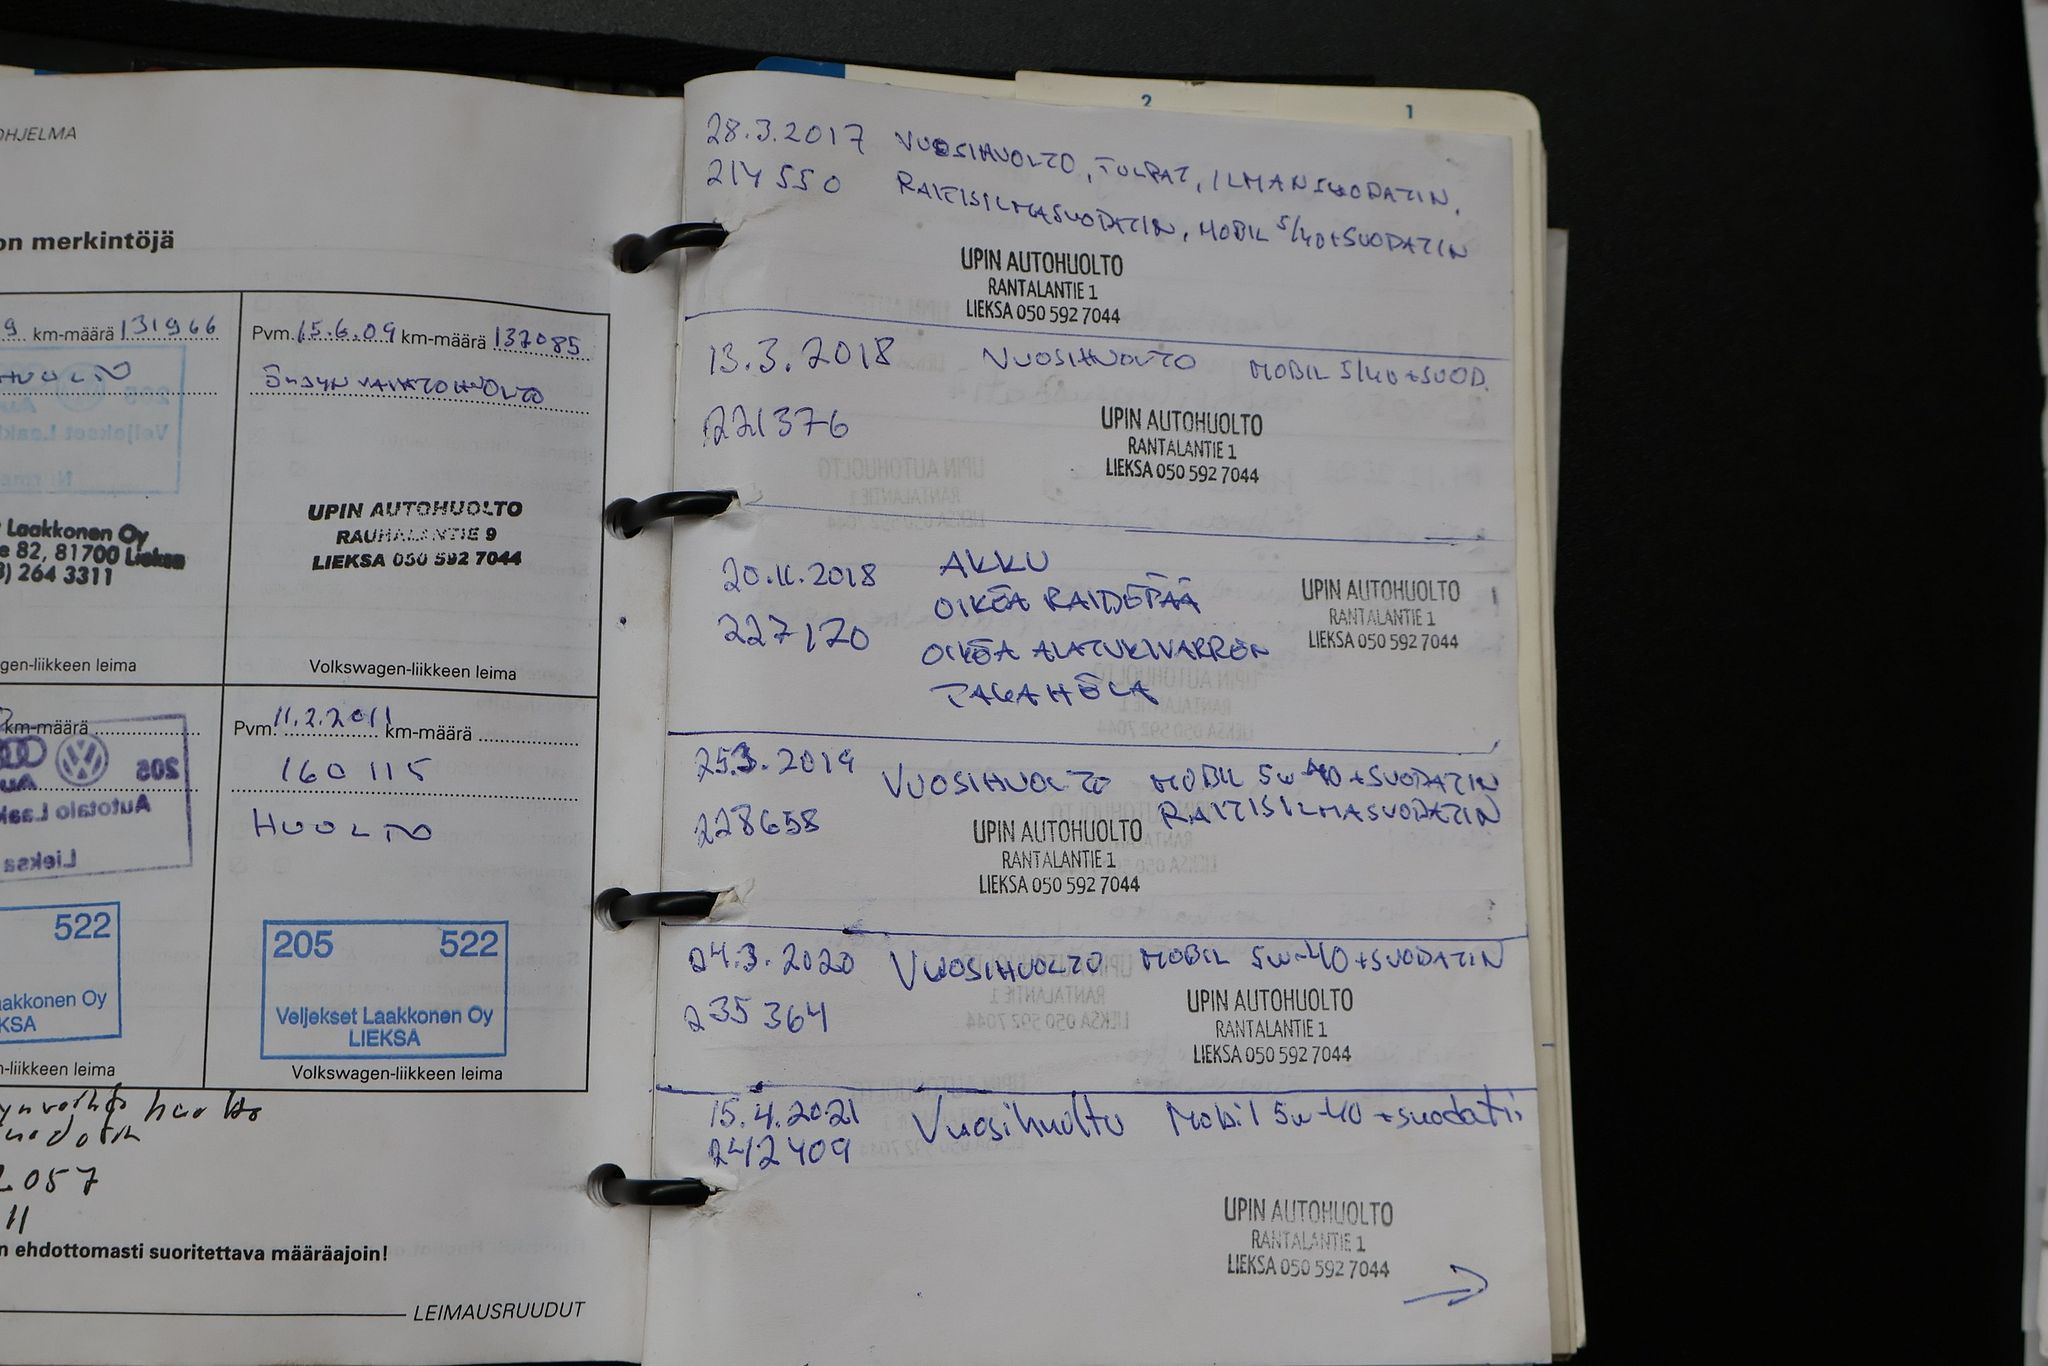 OHJELMA
on merkintöjä
9 km-määrä 131966
HUOLTO
Laakkonen Oy
e 82, 81700 Lieksa
) 264 3311
gen-liikkeen leima
Pvm. 15.6.09 km-määrä 137085
ÖLJYN VAIHTO HUOLTO
UPIN AUTOHUOLTO
RAUHALANTIE 9
LIEKSA 050 592 7044
Volkswagen-liikkeen leima
km-määrä
205
Autotalo Laak
Lieksa
522
aakkonen Oy
KSA
n-liikkeen leima
Pvm. 11.2.2011 km-määrä
160 115
HUOLTO
205 522
Veljekset Laakkonen Oy
LIEKSA
Volkswagen-liikkeen leima
huolto
2057
11
n ehdottomasti suoritettava määräajoin!
LEIMAUSRUUDUT
2 1
28.3.2017 VUOSIHUOLTO, TULPAT, ILMANSUODATIN,
214550 RAITISILMASUODATIN, MOBIL 5/40+SUODATIN
UPIN AUTOHUOLTO
RANTALANTIE 1
LIEKSA 050 592 7044
13.3.2018 VUOSIHUOLTO MOBIL 5/40+SUOD.
221376
UPIN AUTOHUOLTO
RANTALANTIE 1
LIEKSA 050 592 7044
20.11.2018 AKKU
OIKEA RAIDEPÄÄ
227120
OIKEA ALATUKIVARREN
TAKAHELA
UPIN AUTOHUOLTO
RANTALANTIE 1
LIEKSA 050 592 7044
25.3.2019 VUOSIHUOLTO MOBIL 5W-40+SUODATIN
228658 RAITISILMASUODATIN
UPIN AUTOHUOLTO
RANTALANTIE 1
LIEKSA 050 592 7044
24.3.2020 VUOSIHUOLTO MOBIL 5W-40+SUODATIN
235364
UPIN AUTOHUOLTO
RANTALANTIE 1
LIEKSA 050 592 7044
15.4.2021 Vuosihuolto Mobil 5w-40 +suodatin
242409
UPIN AUTOHUOLTO
RANTALANTIE 1
LIEKSA 050 592 7044